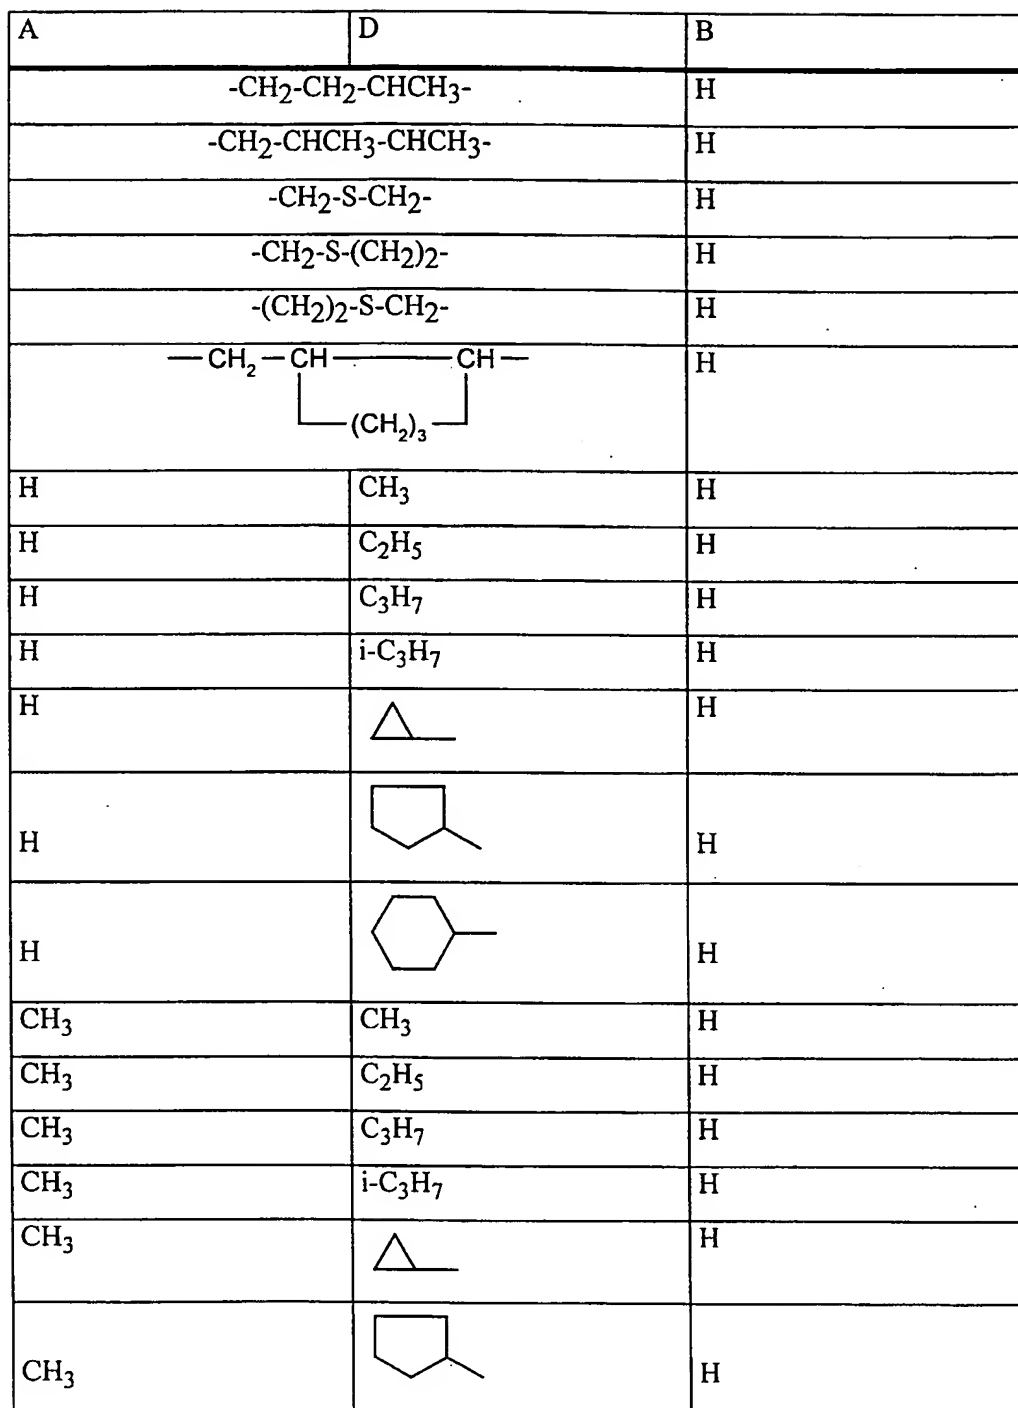 A D B
-CH2-CH2-CHCH3- H
-CH2-CHCH3-CHCH3- H
-CH2-S-CH2- H
-CH2-S-(CH2)2- H
-(CH2)2-S-CH2- H
—CH2—CH——CH— H
(CH2)3
H CH3 H
H C2H5 H
H C3H7 H
H i-C3H7 H
H H
H H
H H
CH3 CH3 H
CH3 C2H5 H
CH3 C3H7 H
CH3 i-C3H7 H
CH3 H
CH3 H